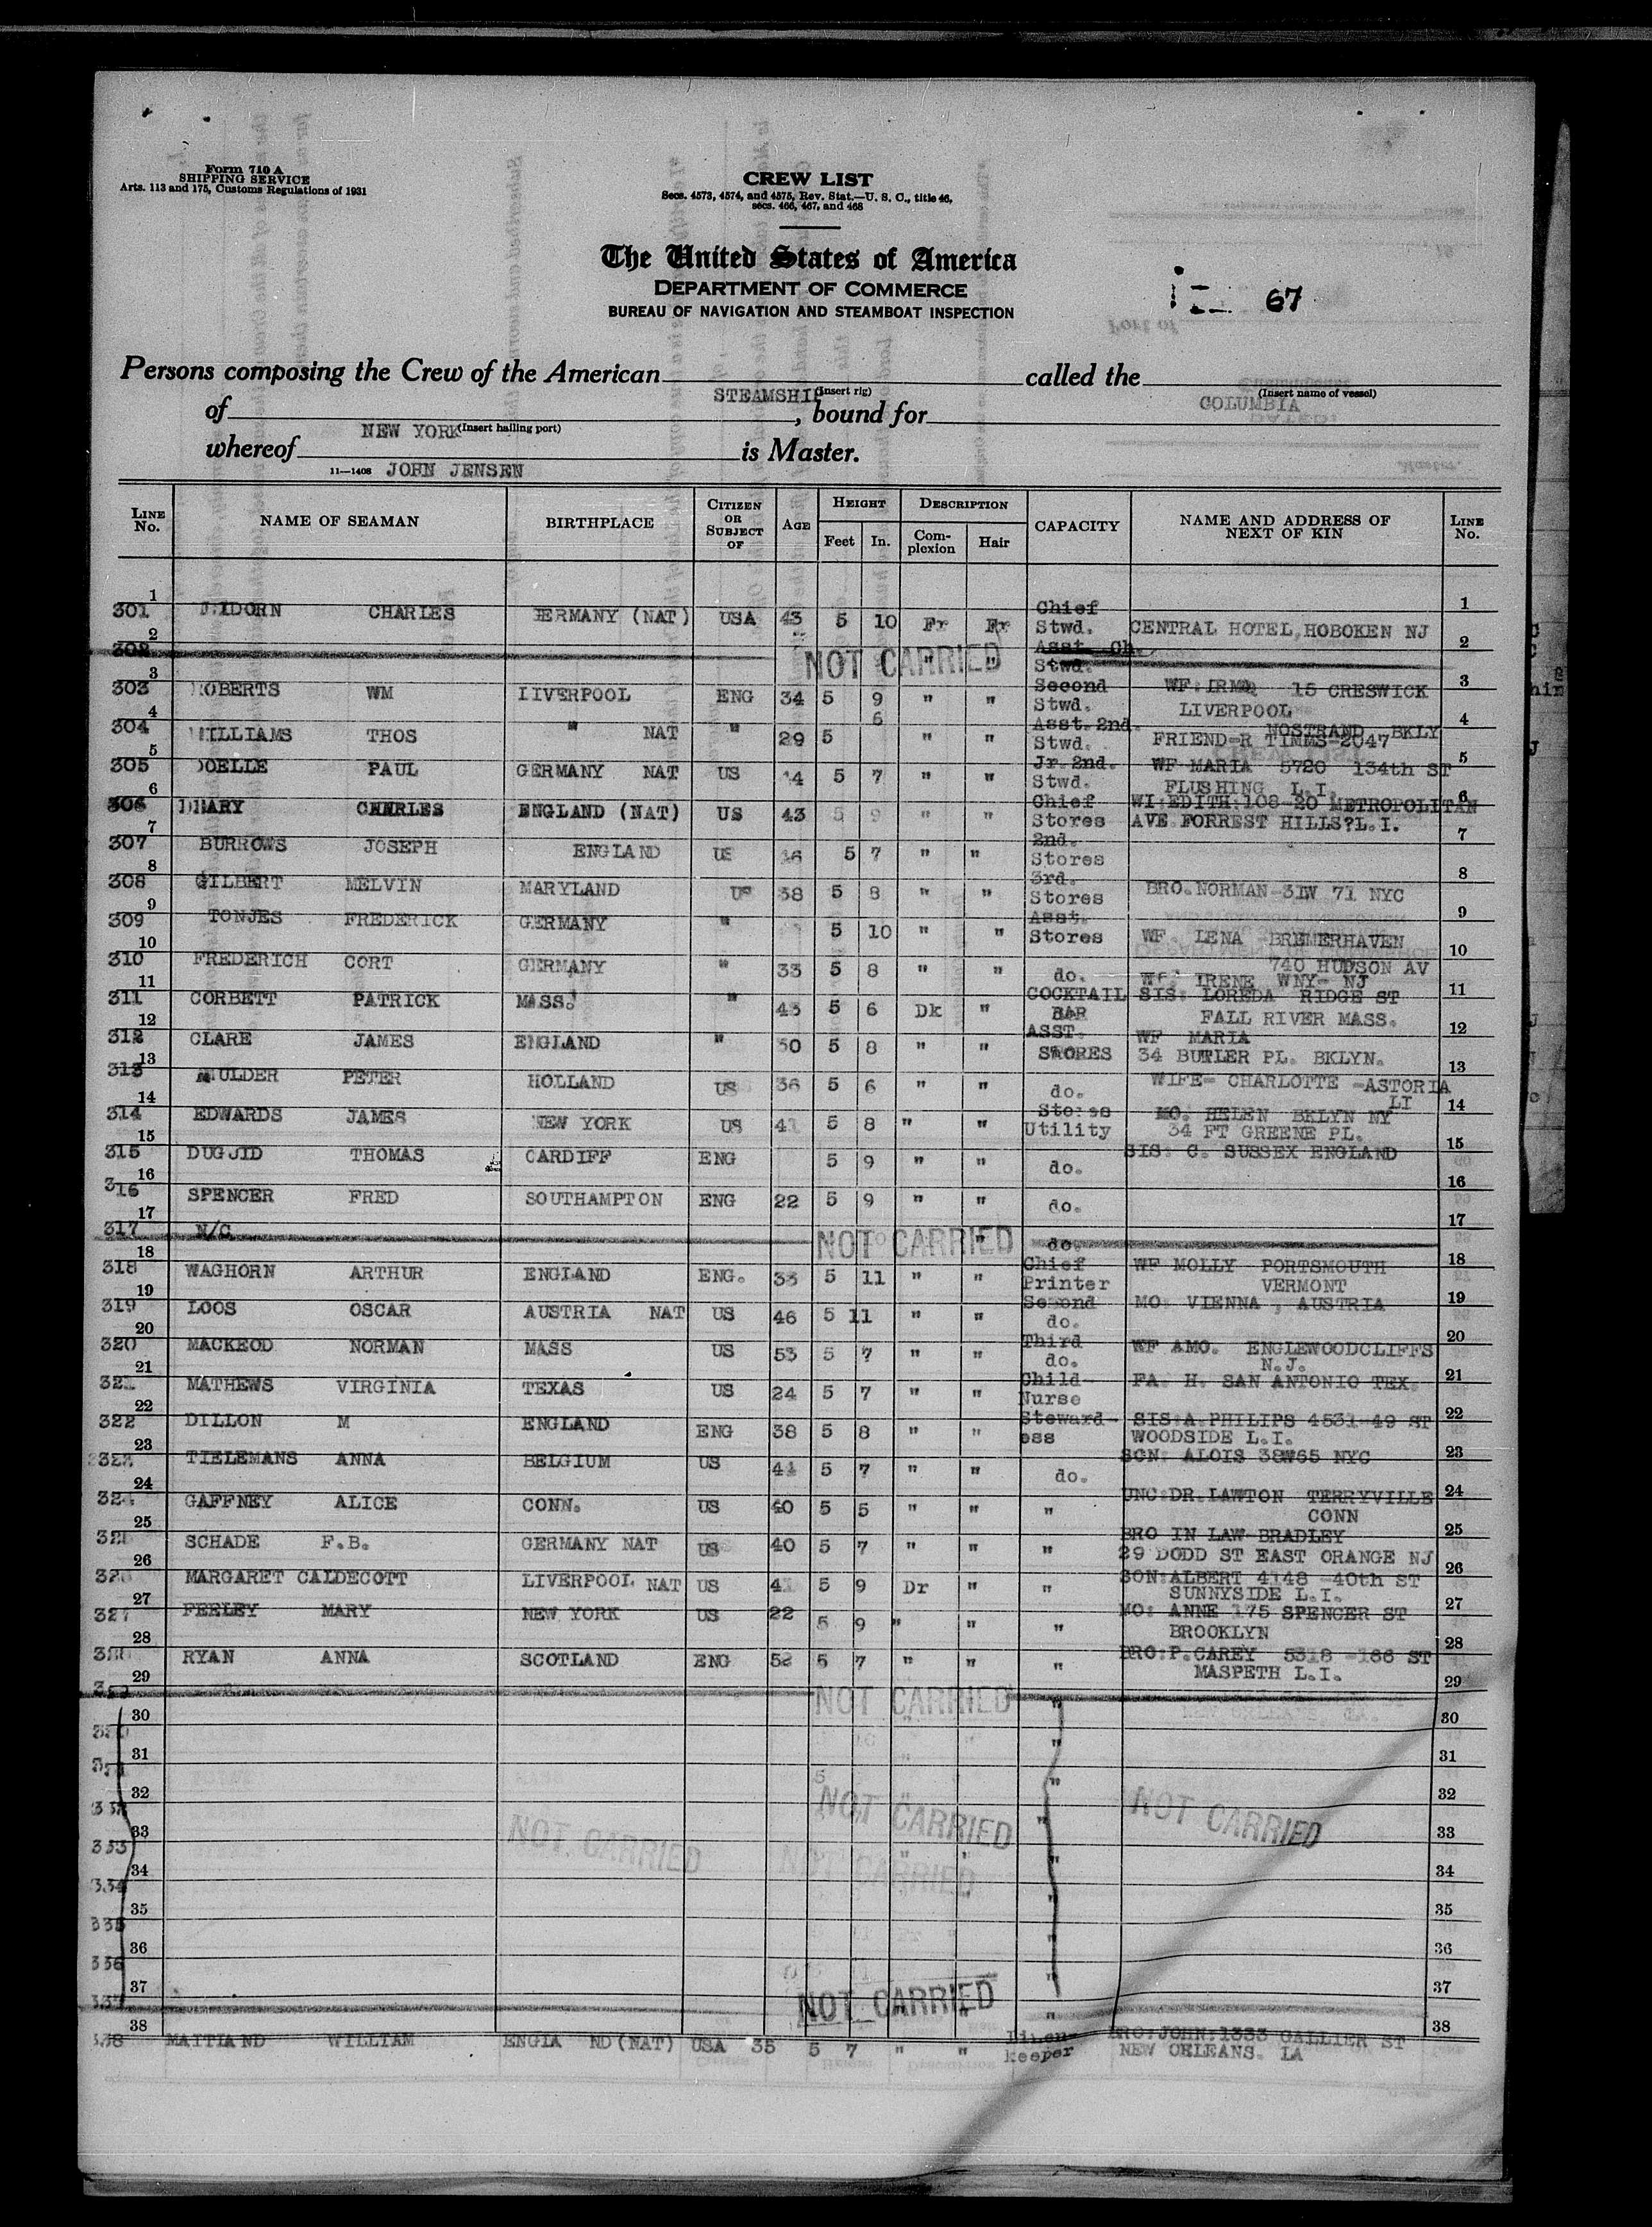 Form 710 A
SHIPPING SERVICE
Arts. 113 and 175, Customs Regulations of 1931
CREW LIST
Secs. 4573, 4574, and 4575, Rev. Stat.—U. S. C., title 46,
secs. 466, 467, and 468
The United States of America
DEPARTMENT OF COMMERCE
BUREAU OF NAVIGATION AND STEAMBOAT INSPECTION
67
Persons composing the Crew of the American called the
STEAMSHIP (Insert rig) COLUMBIA (Insert name of vessel)
of , bound for
NEW YORK (Insert hailing port)
whereof is Master.
11—1408 JOHN JENSEN
LINE No. NAME OF SEAMAN BIRTHPLACE CITIZEN OR SUBJECT OF AGE HEIGHT Feet In. DESCRIPTION Complexion Hair CAPACITY NAME AND ADDRESS OF NEXT OF KIN LINE No.
1 301 CHARLES GERMANY (NAT) USA 43 5 10 Fr Fr Chief Stwd. CENTRAL HOTEL, HOBOKEN NJ 1
2 302 NOT CARRIED " " Asst. Ch. Stwd. 2
3 303 ROBERTS WM LIVERPOOL ENG 34 5 9 " " Second Stwd. WF: IRMA 15 CRESWICK LIVERPOOL 3
4 304 WILLIAMS THOS " NAT " 29 5 6 " " Asst. 2nd. Stwd. FRIEND-R TIMMS-2047 NOSTRAND, BKLY 4
5 305 PAUL GERMANY NAT US 5 7 " " Jr. 2nd. Stwd. WF MARIA 5720 134th ST FLUSHING L.I. 5
6 306 CHARLES ENGLAND (NAT) US 43 5 9 " " Chief Stores WI:EDITH:108-20 METROPOLITAN AVE FORREST HILLS?L.I. 6
7 307 BURROWS JOSEPH ENGLAND US 5 7 " " 2nd. Stores 7
8 308 GILBERT MELVIN MARYLAND US 38 5 8 " " 3rd. Stores BRO.NORMAN-31W 71 NYC 8
9 309 TONJES FREDERICK GERMANY " 5 10 " " Asst. Stores WF. LENA -BREMERHAVEN 9
10 310 FREDERICH CORT GERMANY " 33 5 8 " " do. WF: IRENE 740 HUDSON AV WNY- NJ 10
11 311 CORBETT PATRICK MASS. " 43 5 6 Dk " COCKTAIL BAR SIS: LOREDA RIDGE ST FALL RIVER MASS. 11
12 312 CLARE JAMES ENGLAND " 50 5 8 " " ASST. STORES WF MARIA 34 BUTLER PL. BKLYN. 12
13 313 MULDER PETER HOLLAND US 36 5 6 " " do. WIFE- CHARLOTTE -ASTORIA LI 13
14 314 EDWARDS JAMES NEW YORK US 5 8 " " Stores Utility MO. HELEN BKLYN NY 34 FT GREENE PL. 14
15 315 DUGUID THOMAS CARDIFF ENG 5 9 " " do. SIS: C. SUSSEX ENGLAND 15
16 316 SPENCER FRED SOUTHAMPTON ENG 22 5 9 " " do. 16
17 317 N/C NOT CARRIED " do. 17
18 318 WAGHORN ARTHUR ENGLAND ENG. 33 5 11 " " Chief Printer WF MOLLY PORTSMOUTH VERMONT 18
19 319 LOOS OSCAR AUSTRIA NAT US 46 5 11 " " Second do. MO: VIENNA , AUSTRIA 19
20 320 MACKEOD NORMAN MASS US 53 5 7 " " Third do. WF AMO. ENGLEWOODCLIFFS N.J. 20
21 321 MATHEWS VIRGINIA TEXAS US 24 5 7 " " Child- Nurse FA. H. SAN ANTONIO TEX. 21
22 322 DILLON M ENGLAND ENG 38 5 8 " " Steward- ess SIS:A.PHILIPS 4531-49 ST WOODSIDE L.I. 22
23 323 TIELEMANS ANNA BELGIUM US 41 5 7 " " do. SON: ALOIS 38W65 NYC 23
24 324 GAFFNEY ALICE CONN. US 40 5 5 " " " UNC:DR.LAWTON TERRYVILLE CONN 24
25 SCHADE F.B. GERMANY NAT US 40 5 7 " " " BRO IN LAW-BRADLEY 29 DODD ST EAST ORANGE NJ 25
26 MARGARET CALDECOTT LIVERPOOL NAT US 5 9 Dr " " SON:ALBERT 4148 -40th ST SUNNYSIDE L.I. 26
27 327 FEELEY MARY NEW YORK US 22 5 9 " " " MO: ANNE 175 SPENCER ST BROOKLYN 27
28 RYAN ANNA SCOTLAND ENG 52 5 7 " " " BRO:P.CAREY 5318 -186 ST MASPETH L.I. 28
29 NOT CARRIED " 29
30 " 30
31 " 31
32 " 32
NOT CARRIED NOT CARRIED
33 333 " 33
NOT CARRIED NOT CARRIED
34 334 " 34
35 335 " 35
36 336 " 36
37 337 " 37
NOT CARRIED
38 " 38
338 MAITLAND WILLIAM ENGLAND (NAT) USA 35 5 7 " " Linen- keeper BRO:JOHN:1333 GALLIER ST NEW ORLEANS. LA